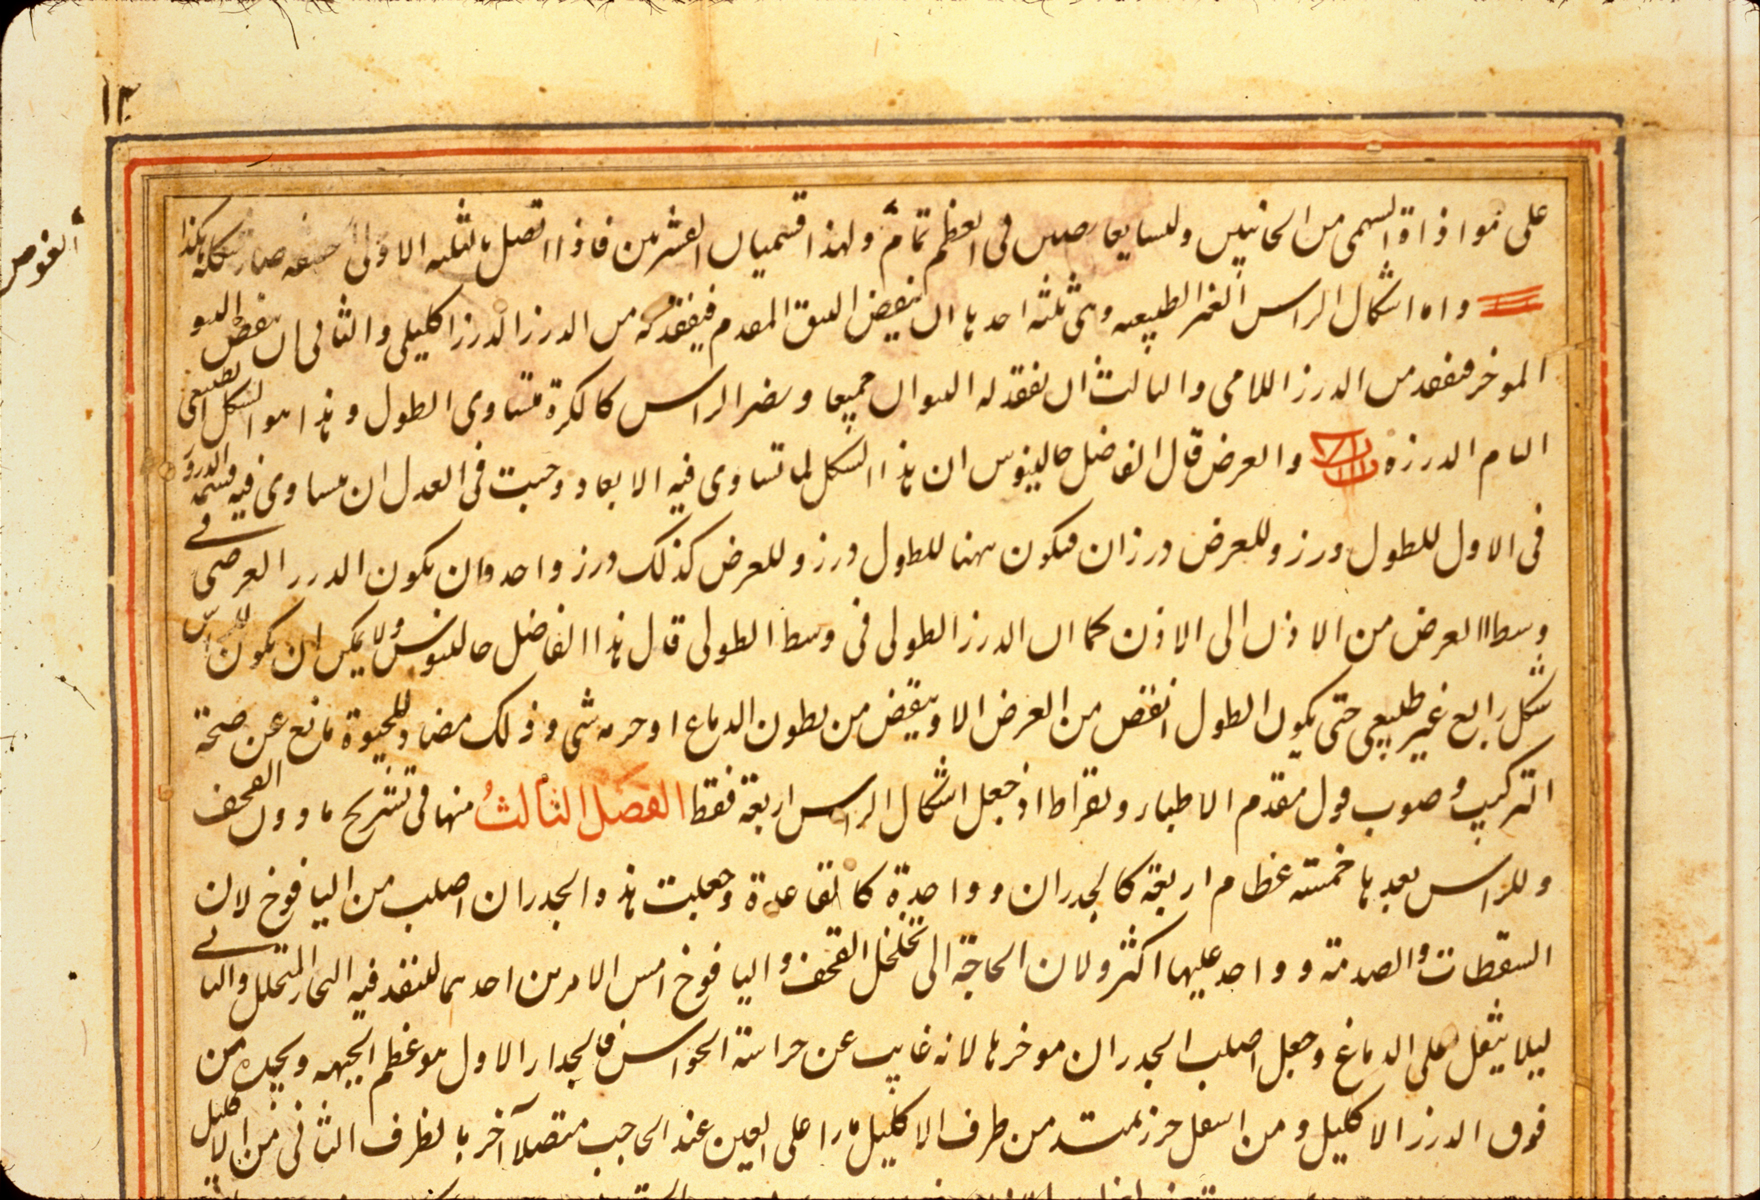 ١٣
على موازاة السهمى من الجانبين وليسا بغايصين فى العظم تمام ولهذا قشميان القشريين فاذا اتصل بالثلثه الاولى صار شكله هكذا
واما اشكال الراس الغير الطبيعيه وهى ثلثه احدها ان ينقض النتو المقدم فيفقد له من الدرز الدرز اكليلى والثانى ان ينقض النتو
الموخر فيفقد من الدرز اللامى والثالث ان يفقد له النتوان جميعا ويصير الراس كالكرة متساوى الطول وهذا هو الشكل الطبيعى
التام الدرزه والعرض قال الفاضل جالينوس ان هذا الشكل لما تساوى فيه الابعاد وجبت فى العدل ان يتساوى فيه قسمة الدروز
فى الاول للطول درز وللعرض درزان فيكون ههنا للطول درز وللعرض كذلك درز واحد وان يكون الدرز العرضى فى
وسط العرض من الاذن الى الاذن كما ان الدرز الطولى فى وسط الطولى قال هذا الفاضل جالينوس ولا يمكن ان يكون للراس
شكل رابع غير طبيعى حتى يكون الطول انقص من العرض الا وينقض من بطون الدماغ او جرمه شى وذلك مضاد للحيوة مانع عن صحة
التركيب وصوب قول مقدم الاطباء وبقراط اذ جعل اشكال الراس اربعة فقط الفصل الثالث منها فى تشريح ما دون القحف
وللراس بعدها خمسته عظام اربعة كالجدران وواحدة كالقاعدة وجعلت هذه الجدران اصلب من اليافوخ لان
السقطات والصدمة وواحد عليها اكثر ولان الحاجة الى تخلخل القحف واليافوخ امس الامرين احدهما لينفذ فيه البخار المتحلل والثانى
ليلا يثقل على الدماغ وجعل اصلب الجدران موخرها لانه غايب عن حراسة الحواس فالجدار الاول هو عظم الجبهه ويحده من
فوق الدرز الاكليلى ومن اسفل حرز يمتد من طرف الاكليل مارا على العين عند الحاجب متصلا آخره بالطرف الثانى من الاكليل